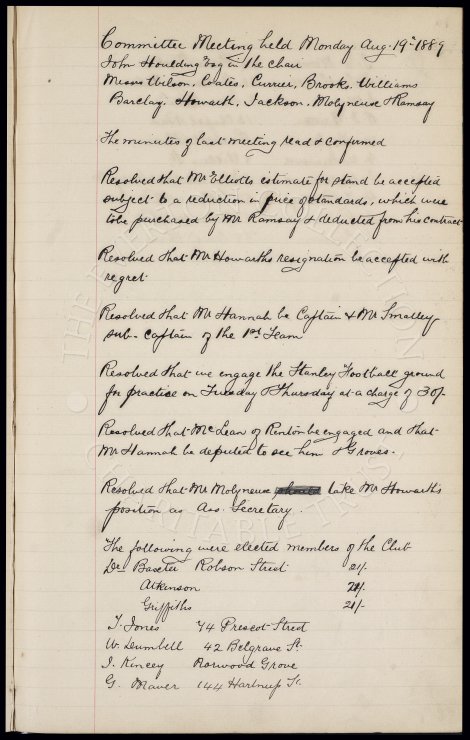 Committee Meeting held Monday Aug. 19th 1889
John Houlding Esq in the Chair
Messrs Wilson, Coates, Currier, Brooks, Williams
Barclay, Howarth, Jackson, Molyneux & Ramsay
The minutes of last meeting read & confirmed
Resolved that Mr Elliotts estimate for stand be accepted
subject to a reduction in price of standards, which were
to be purchased by Mr Ramsay & deducted from his contract
Resolved that Mr Howarths resignation be accepted with
regret
Resolved that Mr Hannah be Captain & Mr Smalley
sub-captain of the 1st Team
Resolved that we engage the Stanley Football ground
for practice on Tuesday & Thursday at a charge of 30/-
Resolved that McLean of Renton be engaged and that
Mr Hannah be deputed to see him & Groves.
Resolved that Mr Molyneux take Mr Howarth's
position as Ass. Secretary.
The following were elected members of the Club
Dr Baxter Robson Street 21/-
Atkinson 21/-
Griffiths 21/-
T. Jones 74 Prescot Street
W. Dumbell 42 Belgrave St.
J. Kincey Norwood Grove
G. Mawer 144 Hartnup St.